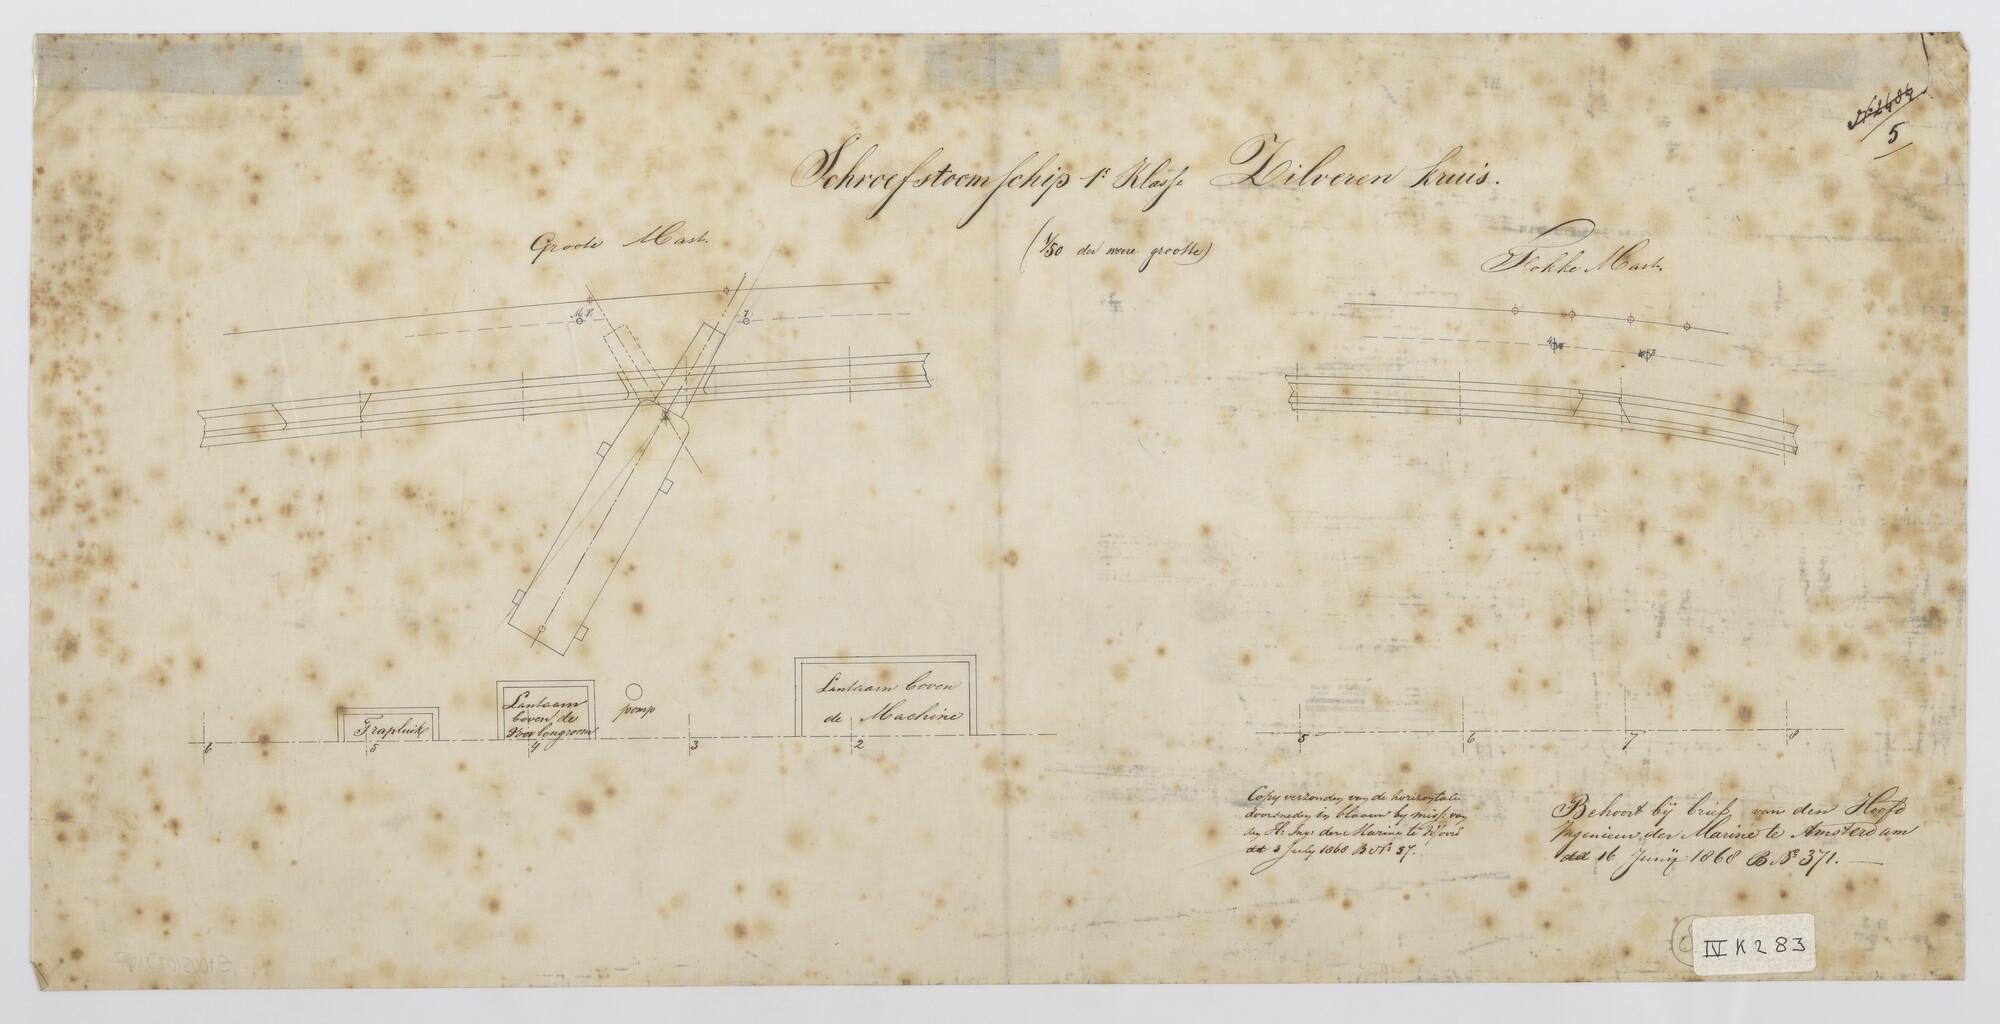 5
Schroefstoomschip 1e Klasse Zilveren kruis.
(1/50 der ware grootte)
Groote Mast.
Fokke Mast.
Lantaarn boven
de Machine
Lantaarn
boven de
pomp
Trapluik
6
5
4
3
2
5
6
7
8
Copy verzonden van de horizontale
doorsneden in blaauw by miss: van
den Hr Ingr der Marine te
dd 3 July 1868 B No 37.
Behoort bij brief van den Hoofd
Ingenieur der Marine te Amsterdam
dd 16 Junij 1868 B No 371.
IV K 283